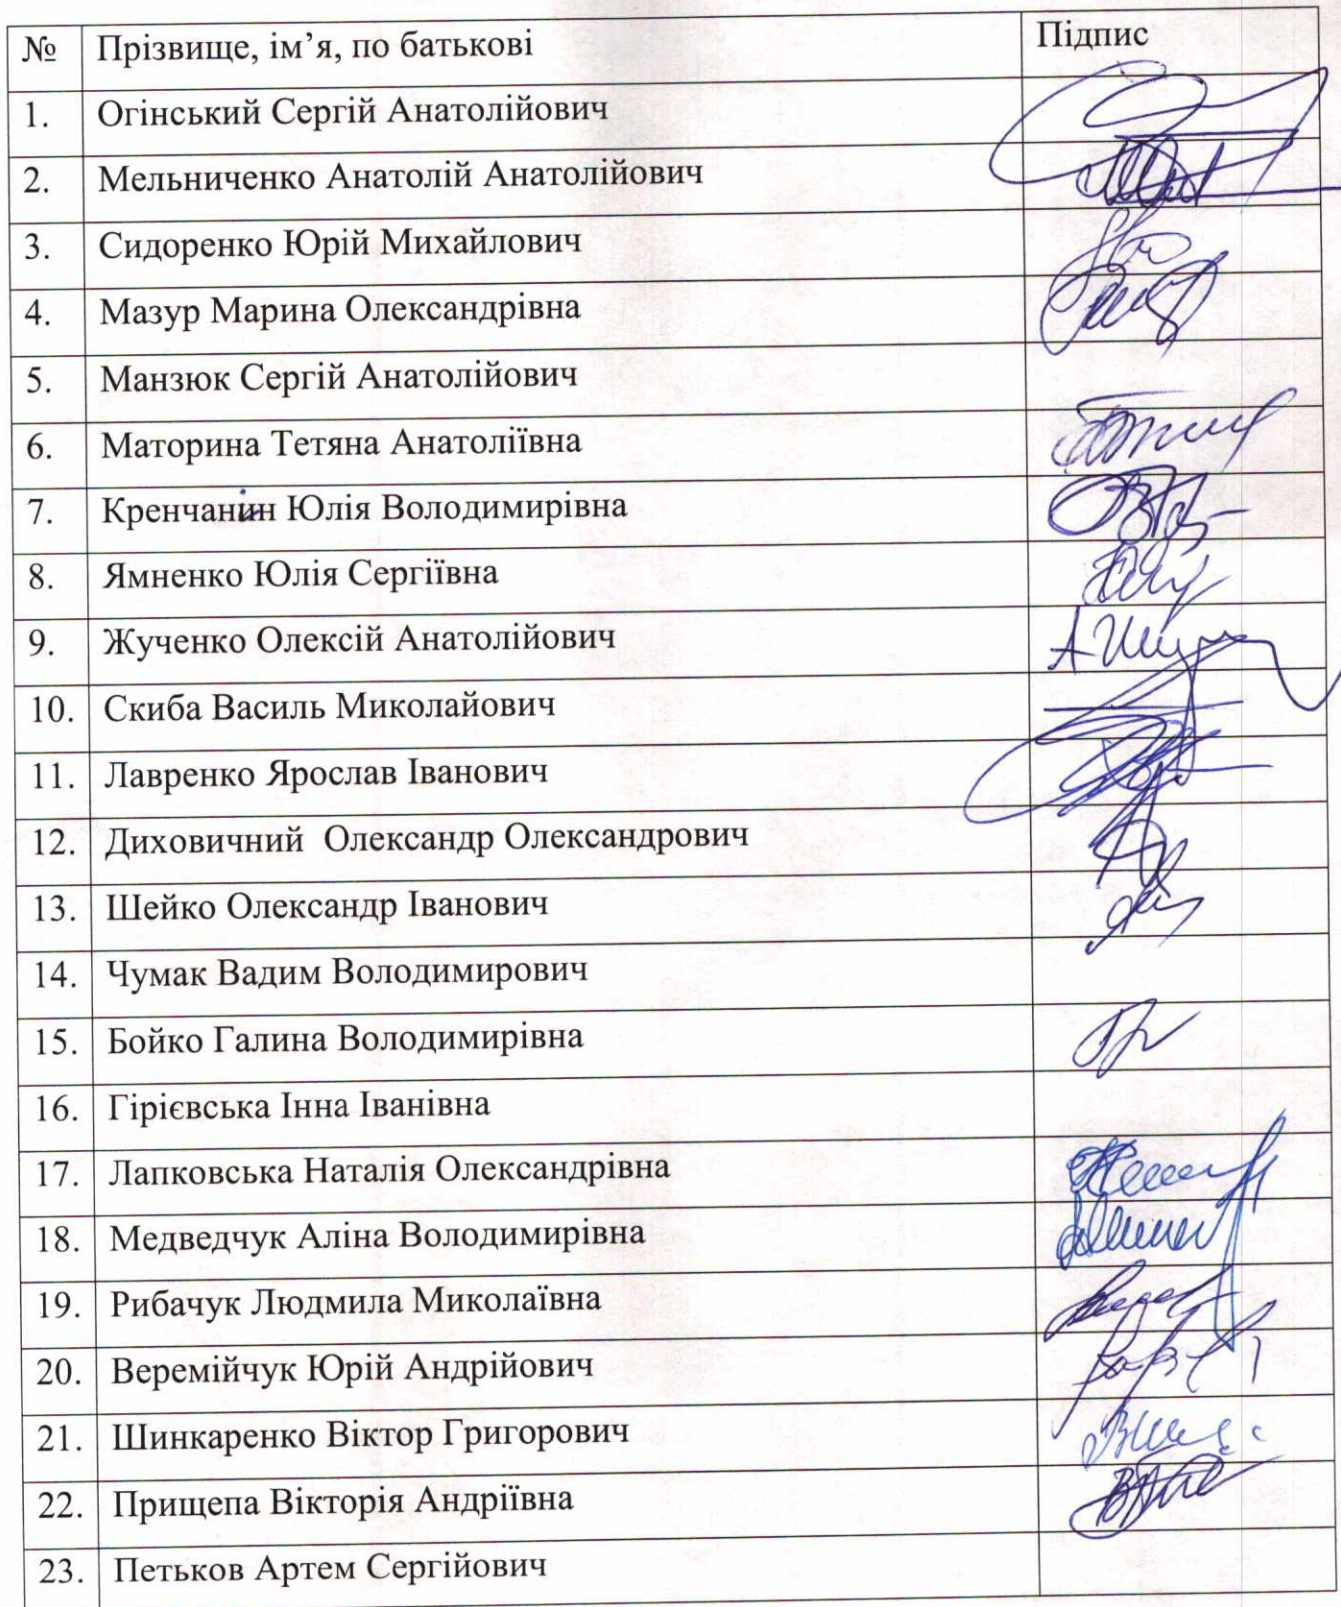 № Прізвище, ім’я, по батькові Підпис
1. Огінський Сергій Анатолійович
2. Мельниченко Анатолій Анатолійович
3. Сидоренко Юрій Михайлович
4. Мазур Марина Олександрівна
5. Манзюк Сергій Анатолійович
6. Маторина Тетяна Анатоліївна
7. Кренчанін Юлія Володимирівна
8. Ямненко Юлія Сергіївна
9. Жученко Олексій Анатолійович
10. Скиба Василь Миколайович
11. Лавренко Ярослав Іванович
12. Диховичний Олександр Олександрович
13. Шейко Олександр Іванович
14. Чумак Вадим Володимирович
15. Бойко Галина Володимирівна
16. Гірієвська Інна Іванівна
17. Лапковська Наталія Олександрівна
18. Медведчук Аліна Володимирівна
19. Рибачук Людмила Миколаївна
20. Веремійчук Юрій Андрійович
21. Шинкаренко Віктор Григорович
22. Прищепа Вікторія Андріївна
23. Петьков Артем Сергійович